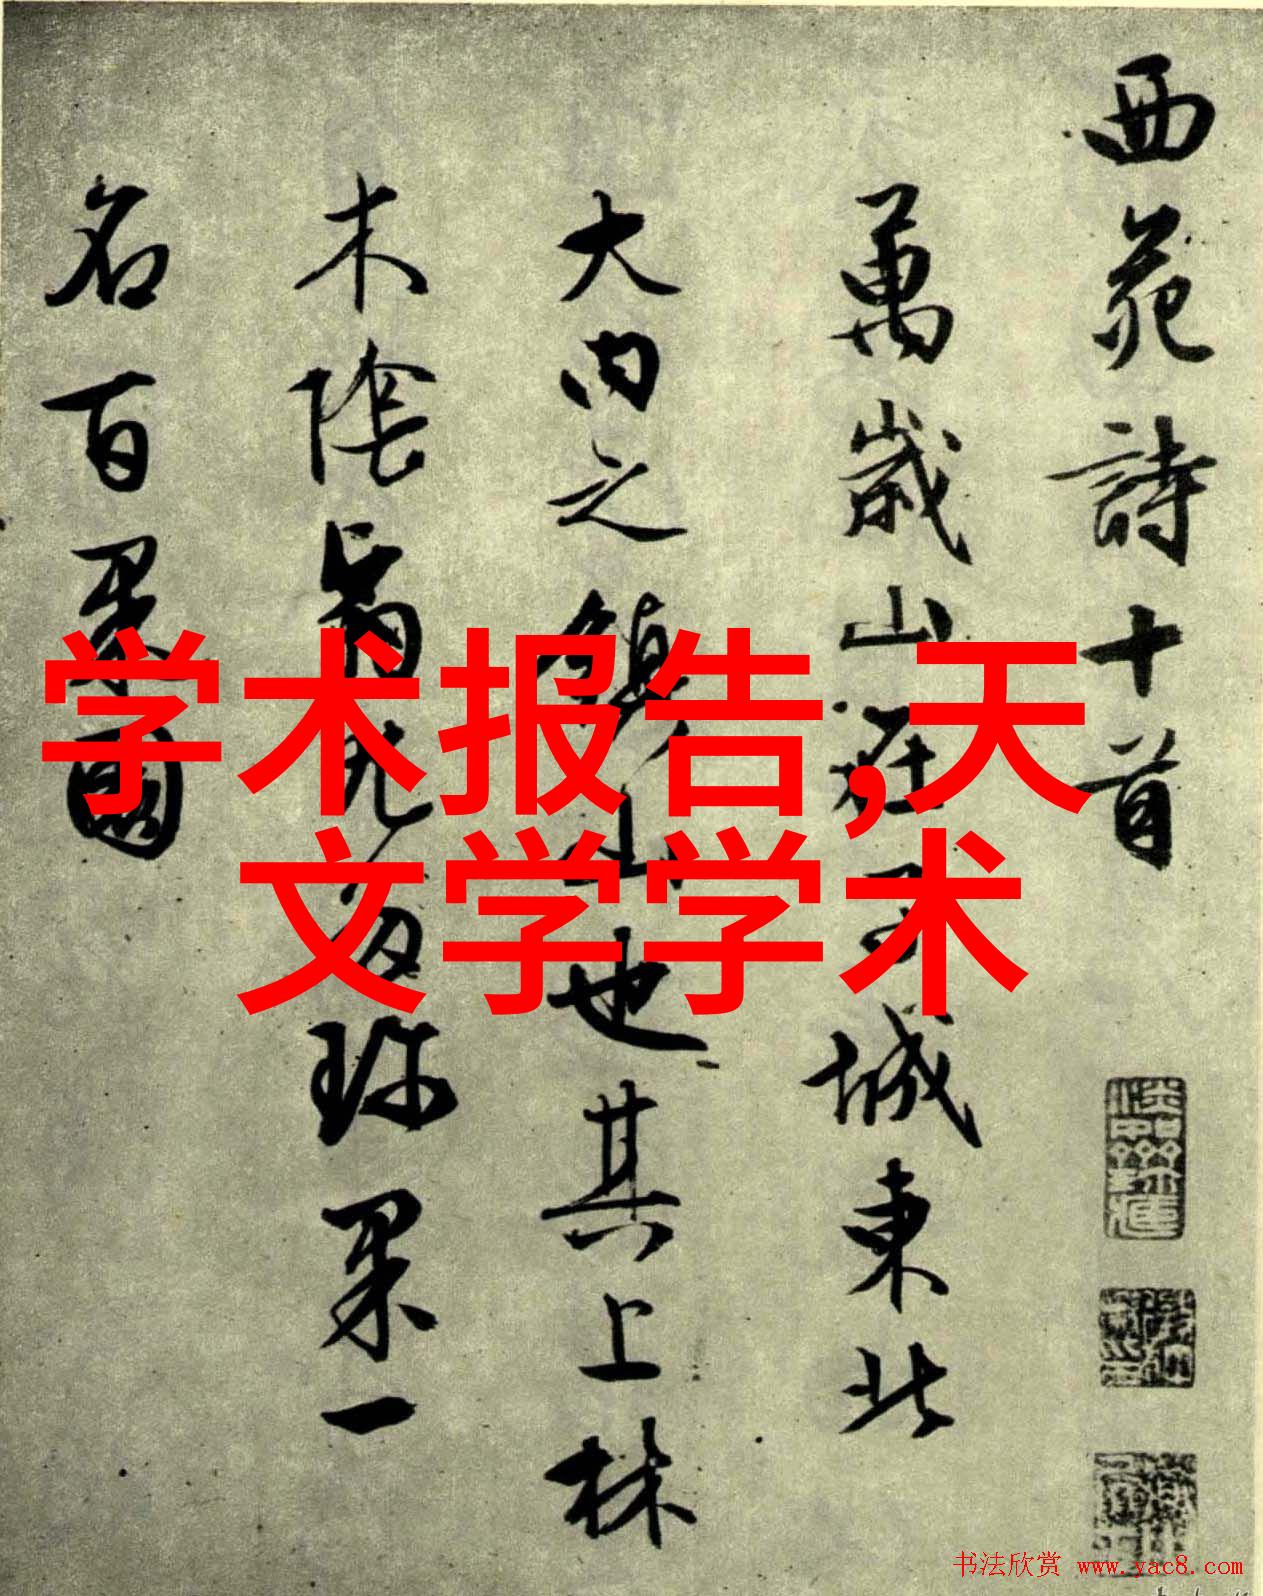 西苑詩十首
萬歲山在子城東北
大内之鎮山也其上林
木陰翳尤多珍果一
名百果園
学术报告,天
文学学术
书法欣赏 www.yac8.com